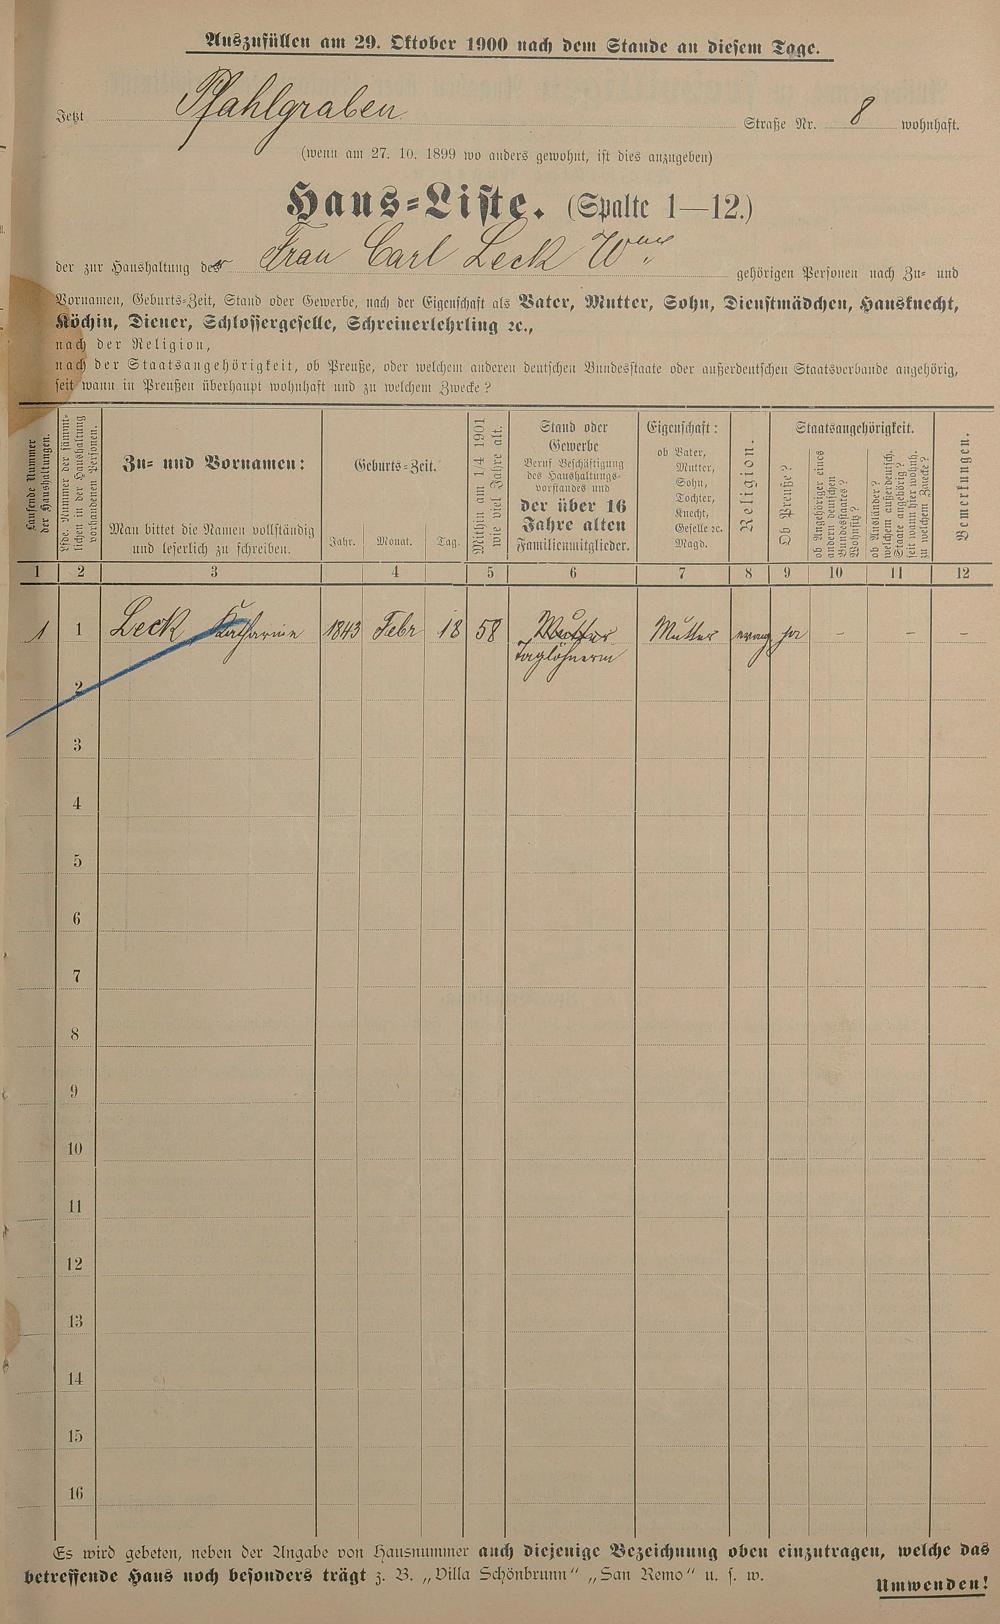 Auszufüllen am 29. Oktober 1900 nach dem Stande an diesem Tage.
Jetzt Pfahlgraben Straße Nr. 8 wohnhaft.
(wenn am 27. 10. 1899 wo anders gewohnt, ist dies anzugeben)
Haus-Liste. (Spalte 1—12.)
der zur Haushaltung der Frau Carl Leck Wwe gehörigen Personen nach Zu- und
Vornamen, Geburts-Zeit, Stand oder Gewerbe, nach der Eigenschaft als Vater, Mutter, Sohn, Dienstmädchen, Hausknecht,
Köchin, Diener, Schlossergeselle, Schreinerlehrling ꝛc.,
nach der Religion,
nach der Staatsangehörigkeit, ob Preuße, oder welchem anderen deutschen Bundesstaate oder außerdeutschen Staatsverbande angehörig,
seit wann in Preußen überhaupt wohnhaft und zu welchem Zwecke?
Laufende Nummer
der Haushaltungen.
Lfde. Nummer der sämmt-
lichen in der Haushaltung
vorhandenen Personen.
Zu- und Vornamen:
Man bittet die Namen vollständig
und leserlich zu schreiben.
Geburts-Zeit.
Jahr. Monat. Tag.
Mithin am 1/4 1901
wie viel Jahre alt.
Stand oder
Gewerbe
Beruf Beschäftigung
des Haushaltungs-
vorstandes und
der über 16
Jahre alten
Familienmitglieder.
Eigenschaft:
ob Vater,
Mutter,
Sohn,
Tochter,
Knecht,
Geselle ꝛc.
Magd.
Religion.
Staatsangehörigkeit.
Ob Preuße?
ob Angehöriger eines
andern deutschen
Bundesstaates?
Wohnsitz?
ob Ausländer?
welchem außerdeutsch.
Staate angehörig?
seit wann hier wohnh.
zu welchem Zwecke?
Bemerkungen.
1 2 3 4 5 6 7 8 9 10 11 12
1 1 Leck Katharine 1843 Febr 18 58 Mutter Mutter evang ja – – –
Taglöhnerin
2
3
4
5
6
7
8
9
10
11
12
13
14
15
16
Es wird gebeten, neben der Angabe von Hausnummer auch diejenige Bezeichnung oben einzutragen, welche das
betreffende Haus noch besonders trägt z. B. „Villa Schönbrunn“ „San Remo“ u. s. w.
Umwenden!